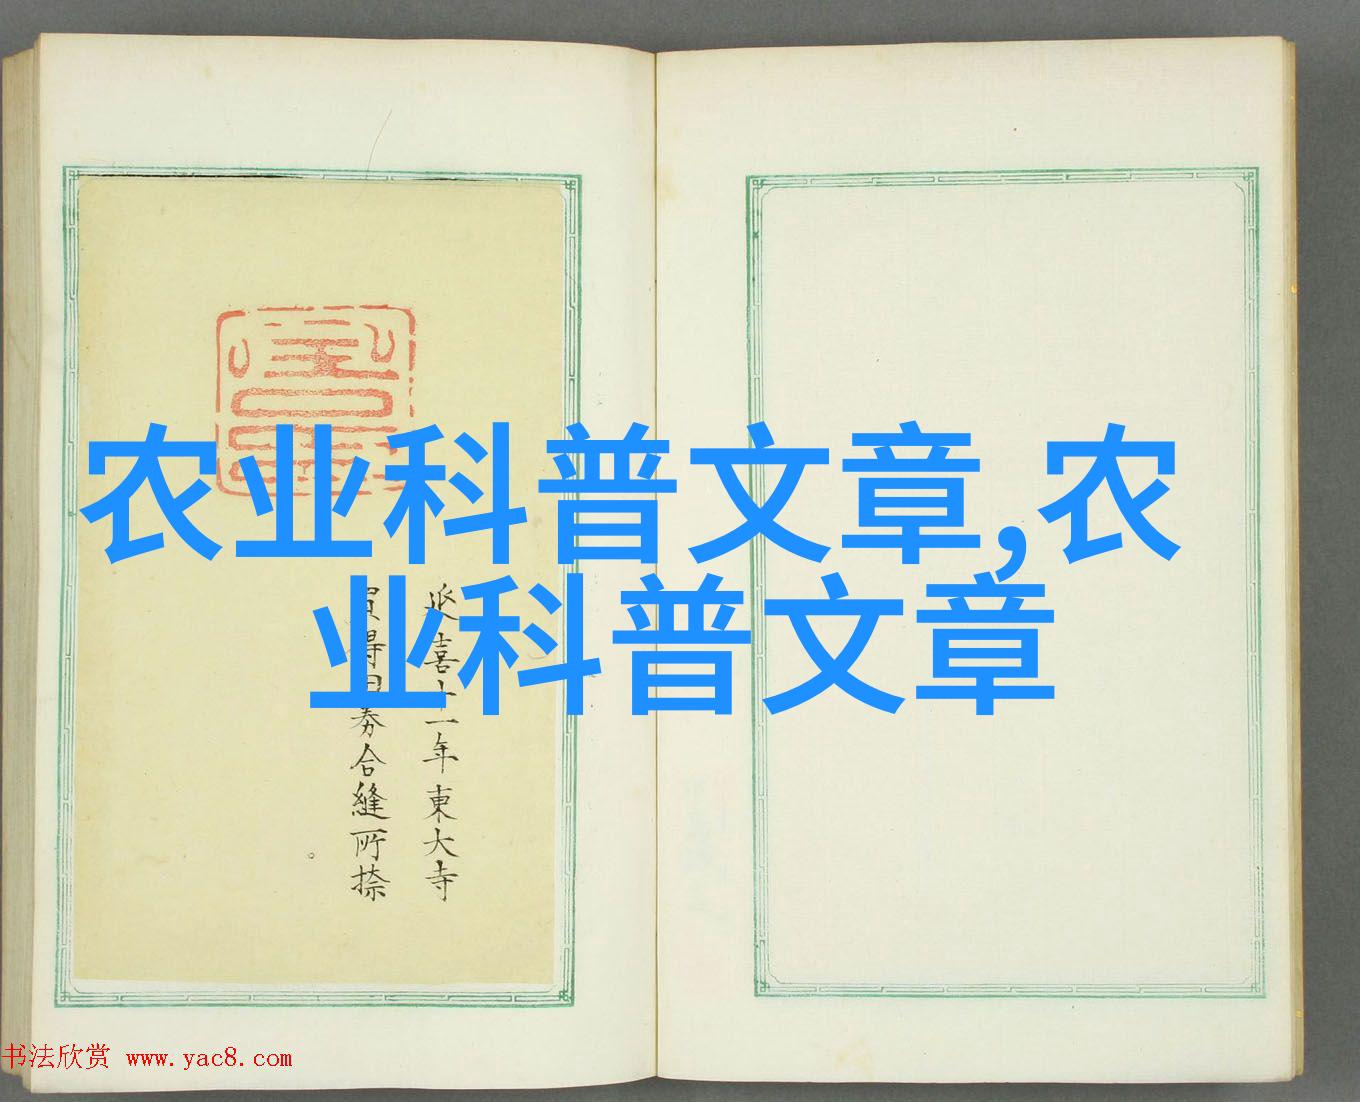 农业科普文章,农
业科普文章
延喜十一年東大寺
買得田券合縫所捺
书法欣赏 www.yac8.com